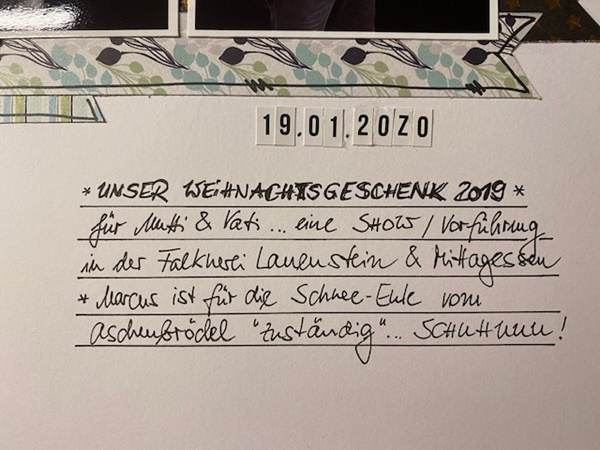 19.01.2020
* UNSER WEIHNACHTSGESCHENK 2019 *
für Mutti & Vati ... eine SHOW / Vorführung
in der Falknerei Lauenstein & Mittagessen
* Marcus ist für die Schnee-Eule vom
Aschenbrödel "zuständig"... SCHUHUUU!